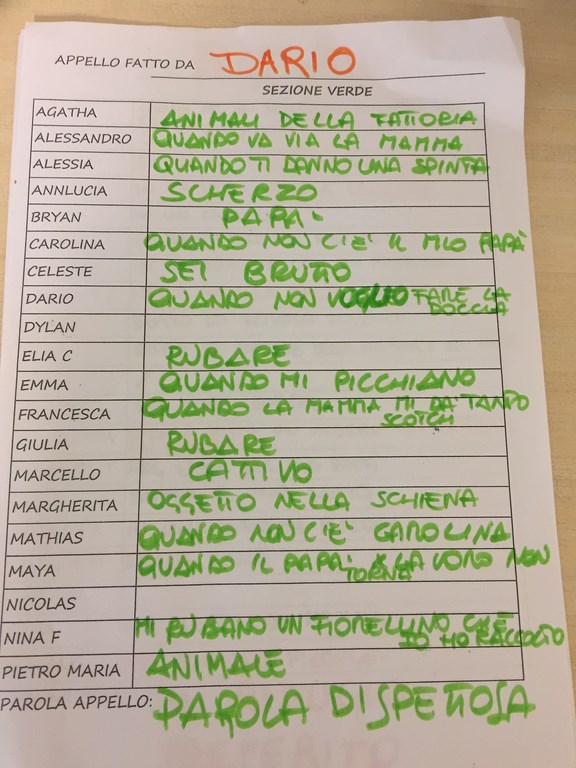 APPELLO FATTO DA DARIO
SEZIONE VERDE
AGATHA ANIMALI DELLA FATTORIA
ALESSANDRO QUANDO VA VIA LA MAMMA
ALESSIA QUANDO TI DANNO UNA SPINTA
ANNLUCIA SCHERZO
BRYAN PAPA'
CAROLINA QUANDO NON C'E' IL MIO PAPÀ
CELESTE SEI BRUTTO
DARIO QUANDO NON VOGLIO FARE LA
DOCCIA
DYLAN
ELIA C RUBARE
EMMA QUANDO MI PICCHIANO
FRANCESCA QUANDO LA MAMMA MI DA' TANTO
SCOTCH
GIULIA RUBARE
MARCELLO CATTIVO
MARGHERITA OGGETTO NELLA SCHIENA
MATHIAS QUANDO NON C'E' CAROLINA
MAYA QUANDO IL PAPA' LAVORO NON
TORNA
NICOLAS
NINA F MI RUBANO UN FIORELLINO CHE
IO HO RACCOLTO
PIETRO MARIA ANIMALE
PAROLA APPELLO: PAROLA DISPETTOSA